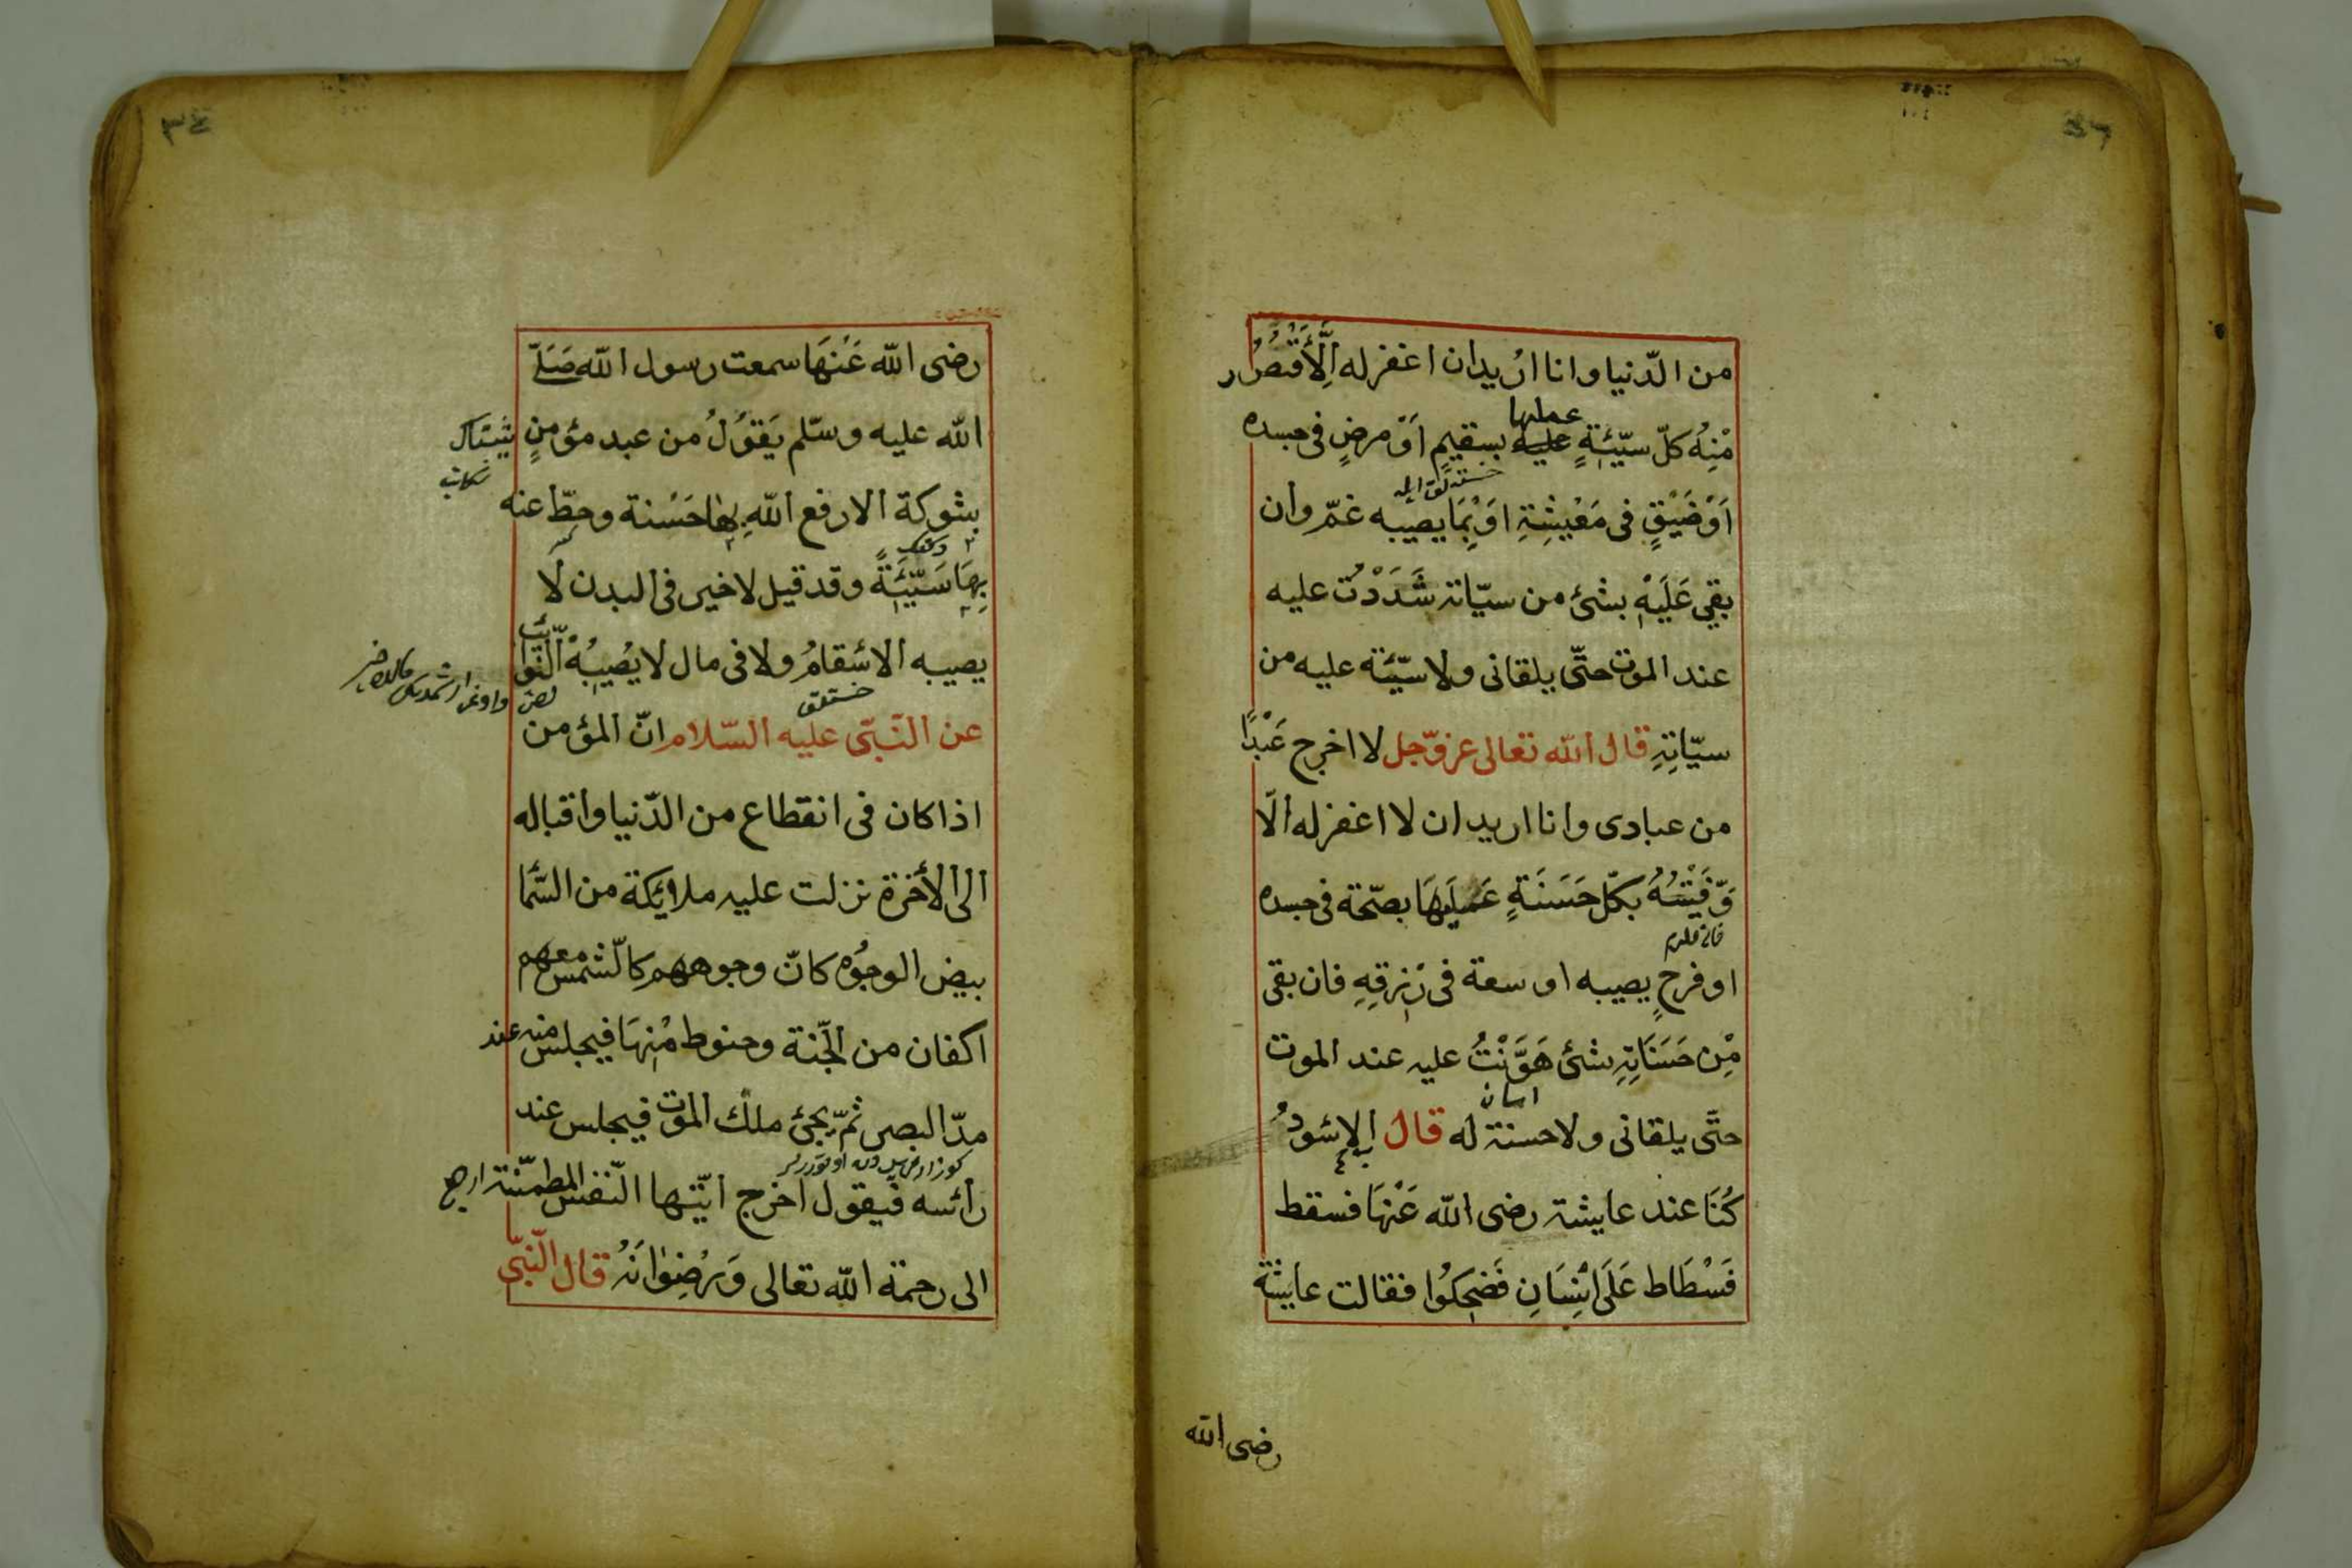 من الدّنيا وانا اُريد ان اغفر له اِلَّا أَقْتَصُرُ
مْنِهُ كلّ سيّئَةٍ عملها بسقيمٍ اَوْ مرضٍ فى جسده
اَوْ ضَيْقٍ فى مَعْيشِةِ اوْ بِمَا يصيبه غمّ وان
بقي عَلَيْهِ بشئ من سيّاته شَدَدْتُ عليه
عند الموت حتّى يلقانى ولا سيّئة عليه من
سيّاتِهِ قال الله تعالى عز وّجل لا اخرج عَبْدًا
من عبادى وانا اريد ان لا اغفر له الّا
وَّفَيْتُهُ بكلّ حَسَنَةٍ عَمِلَهَا بصحّة فى جسده
او فرحٍ يصيبه او سعة فى رْزقِهِ فان بقى
مْن حَسَنَاتِهِ شئ هَوَّنْتُ عليه عند الموت
اسان
حتّى يلقانى ولا حسنة له قال الاسْودُ
كُنَا عند عايشة رضى الله عَنْهَا فسقط
فَسْطَاط عَلَى اِنْسَانِ فَضَحِكُوا فقالت عايشة
رضى الله
٣٤
رضى الله عَنْهَا سمعت رسول الله صَلّ
الله عليه وسلّم يَقوُلُ من عبد مؤمنٍ يشتاك
بشوكة الا رفع الله بها حَسْنة وحطّ عنه
بِهَا سَيّئَةً وقد قيل لا خير فى البدن لَا
يصيبه الاسْقامُ ولا فى مال لا يُصيبُهْ النّوائب
خستلق
عن النّبىّ عليه السّلام انّ المؤمن
اذا كان فى انقطاع من الدّنيا واقباله
الى الأخرة نزلت عليه ملايكة من السّما
بيض الوجوُه كانّ وجوههم كالشّمس معهم
اكفان من الجّنة وحنوط مْنِهَا فيجلس منه عند
مدّ البصر ثمّ يجئ ملك الموت فيجلس عند
رأسه فيقول اخرج ايّتها النّفس المطمئنّة ارجع
الى رحمة الله تعالى وَرْضِوٰانَهُ قال النّبىّ